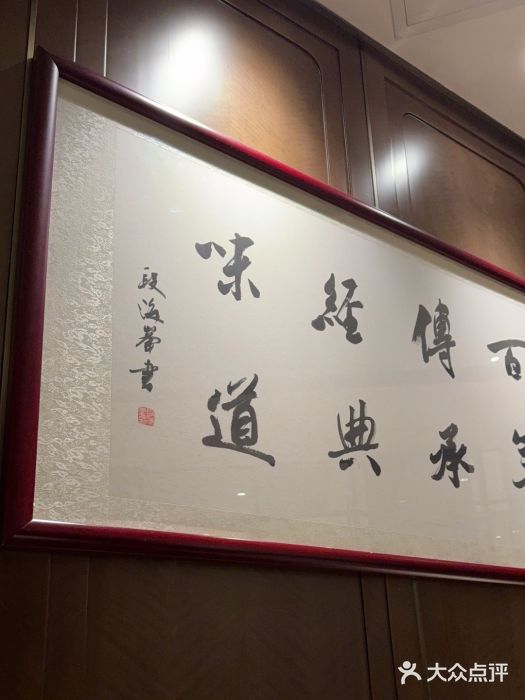 百年
傳承
經典
味道
段海峯書
大众点评